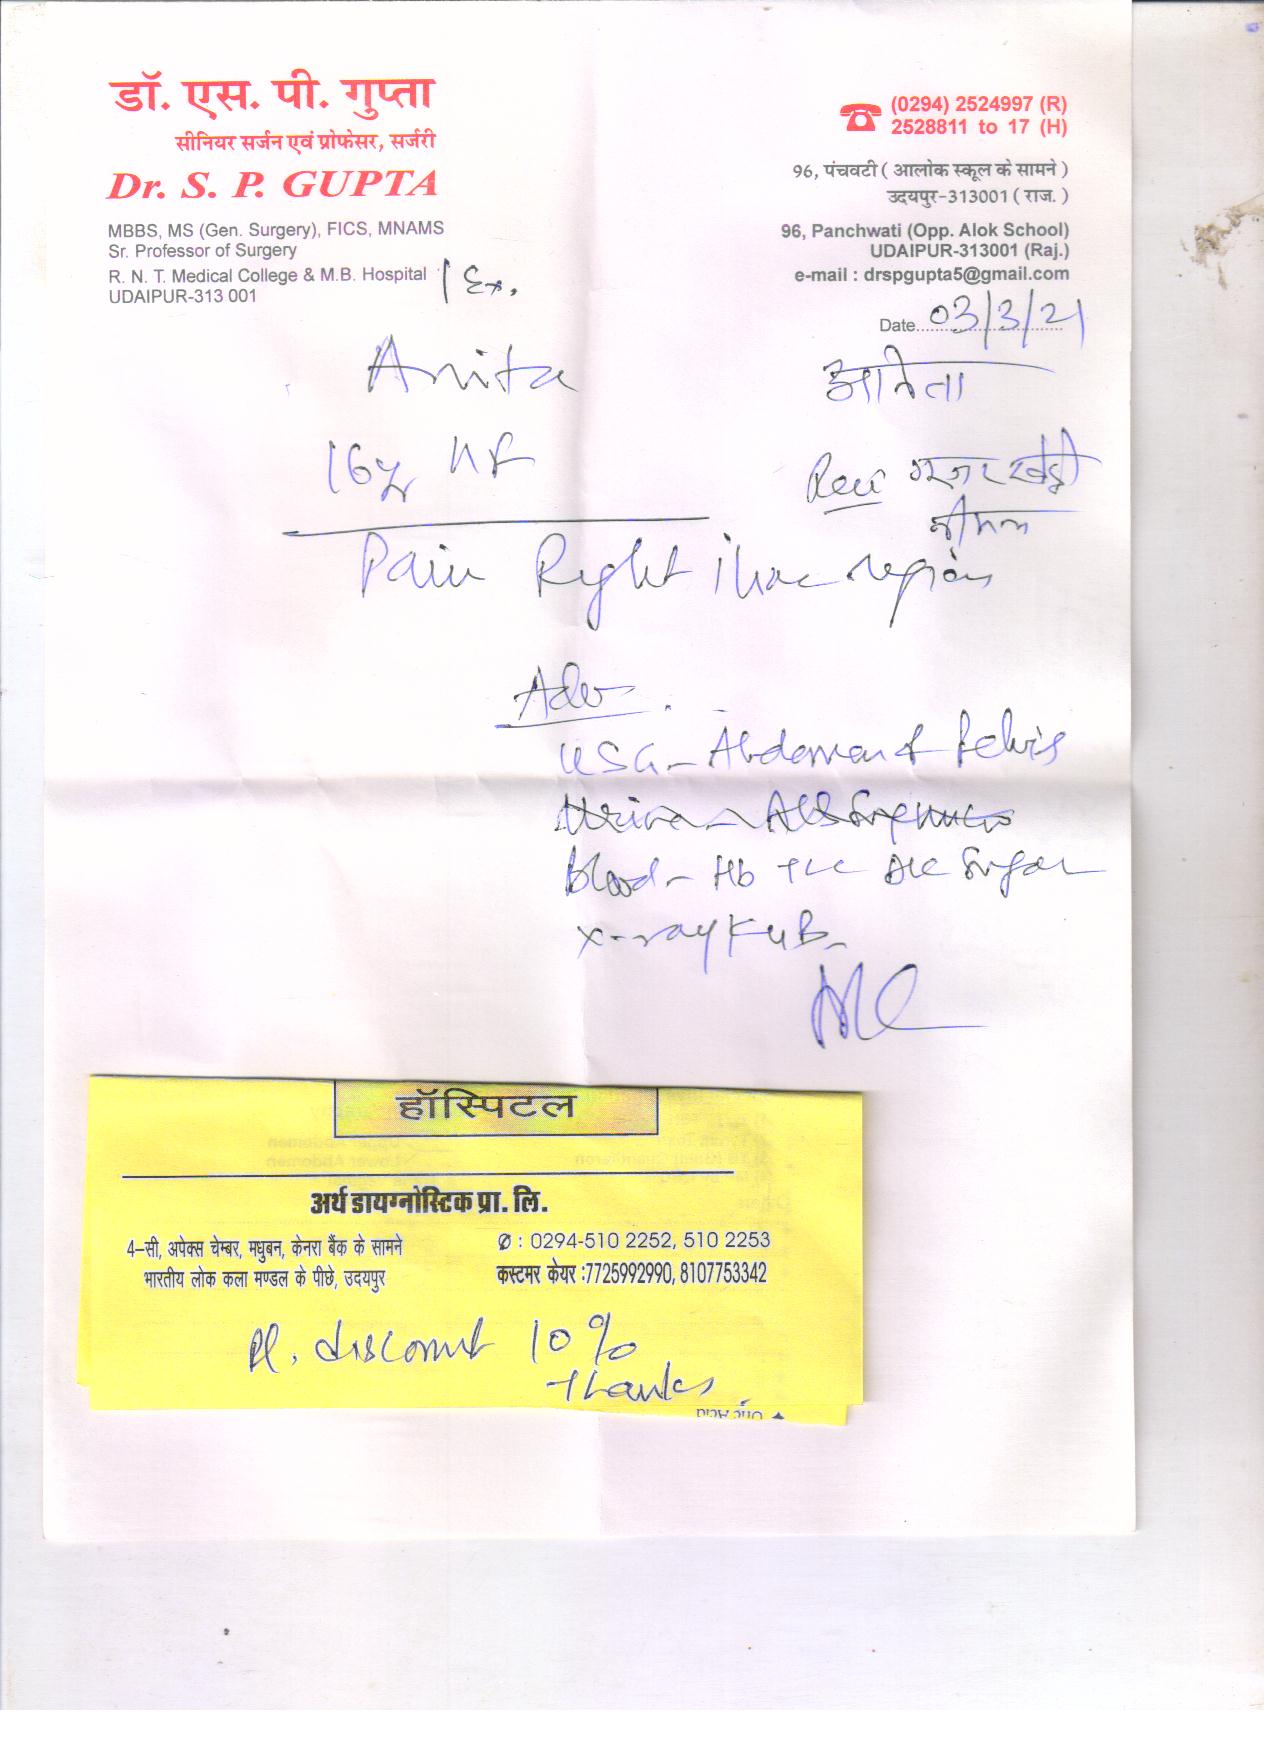 डॉ. एस. पी. गुप्ता
सीनियर सर्जन एवं प्रोफेसर, सर्जरी
Dr. S. P. GUPTA
MBBS, MS (Gen. Surgery), FICS, MNAMS
Sr. Professor of Surgery
R. N. T. Medical College & M.B. Hospital
UDAIPUR-313 001
Ex.
(0294) 2524997 (R)
2528811 to 17 (H)
96, पंचवटी ( आलोक स्कूल के सामने )
उदयपुर-313001 ( राज. )
96, Panchwati (Opp. Alok School)
UDAIPUR-313001 (Raj.)
e-mail : drspgupta5@gmail.com
Date 03/3/21
Anita
अनिता
16y
Pain Right iliac region
Adv
USG - Abdomen & Pelvis
Urine
Blood - Hb TLC DLC Sugar
X-ray KUB
हॉस्पिटल
अर्थ डायग्नोस्टिक प्रा. लि.
4-सी, अपेक्स चेम्बर, मधुबन, केनरा बैंक के सामने
भारतीय लोक कला मण्डल के पीछे, उदयपुर
: 0294-510 2252, 510 2253
कस्टमर केयर :7725992990, 8107753342
Pl. discount 10%
Thanks
Uric Acid